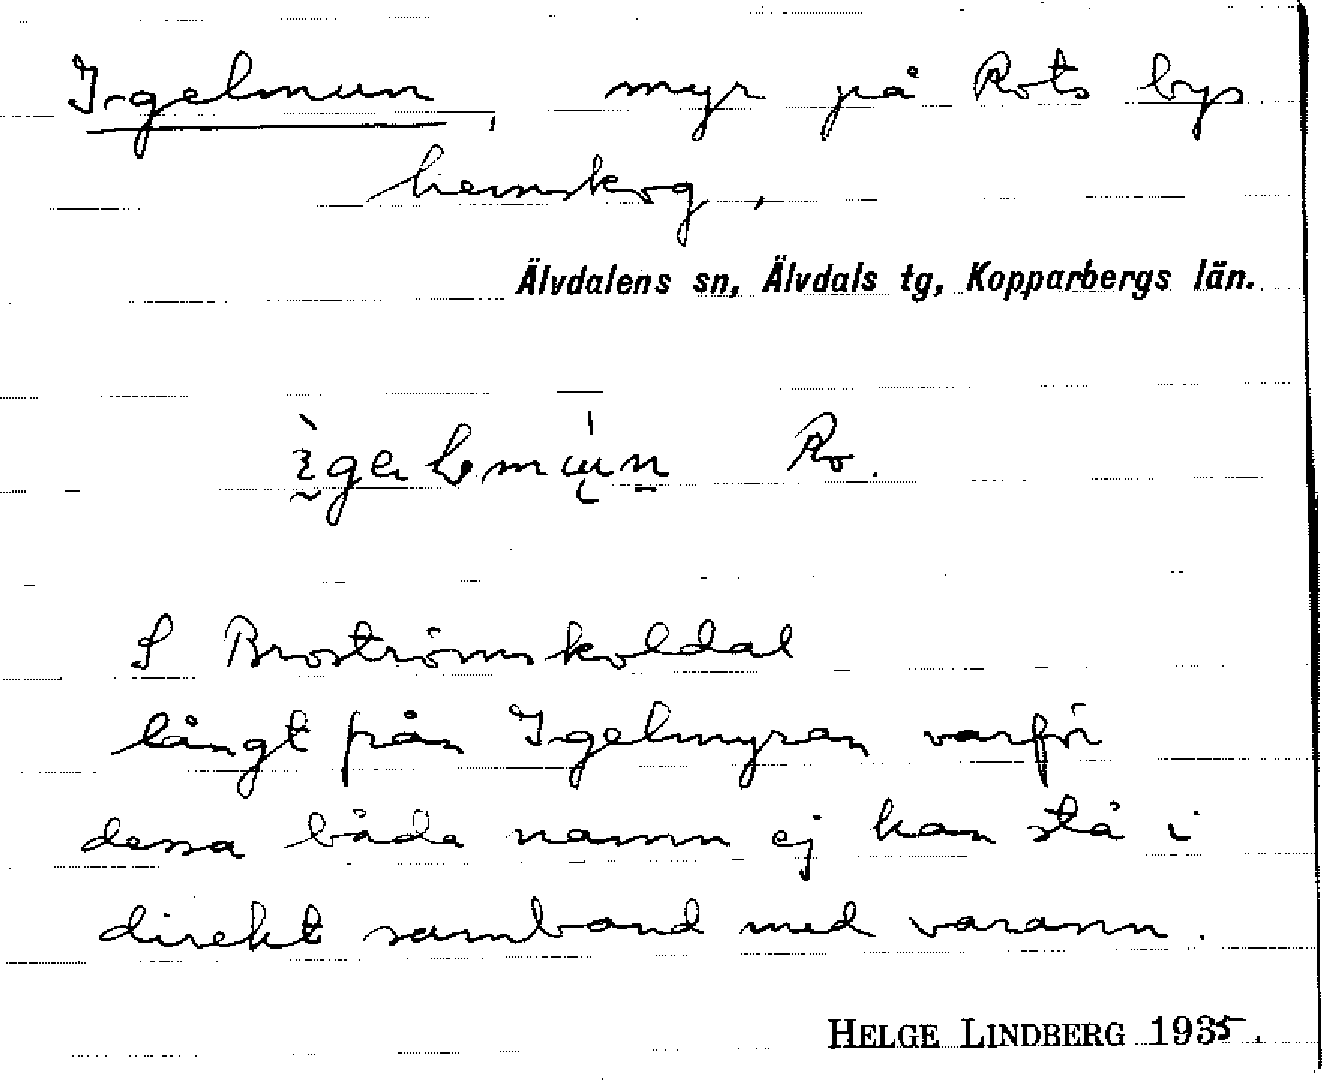 Igelmun, myr på Rots bys
hemskog,
Älvdalens sn, Älvdals tg, Kopparbergs län.
Ro.
S Broströmskoldal
långt från Igelmyran varför
dessa båda namn ej kan stå i
direkt samband med varann.
HELGE LINDBERG 1935.